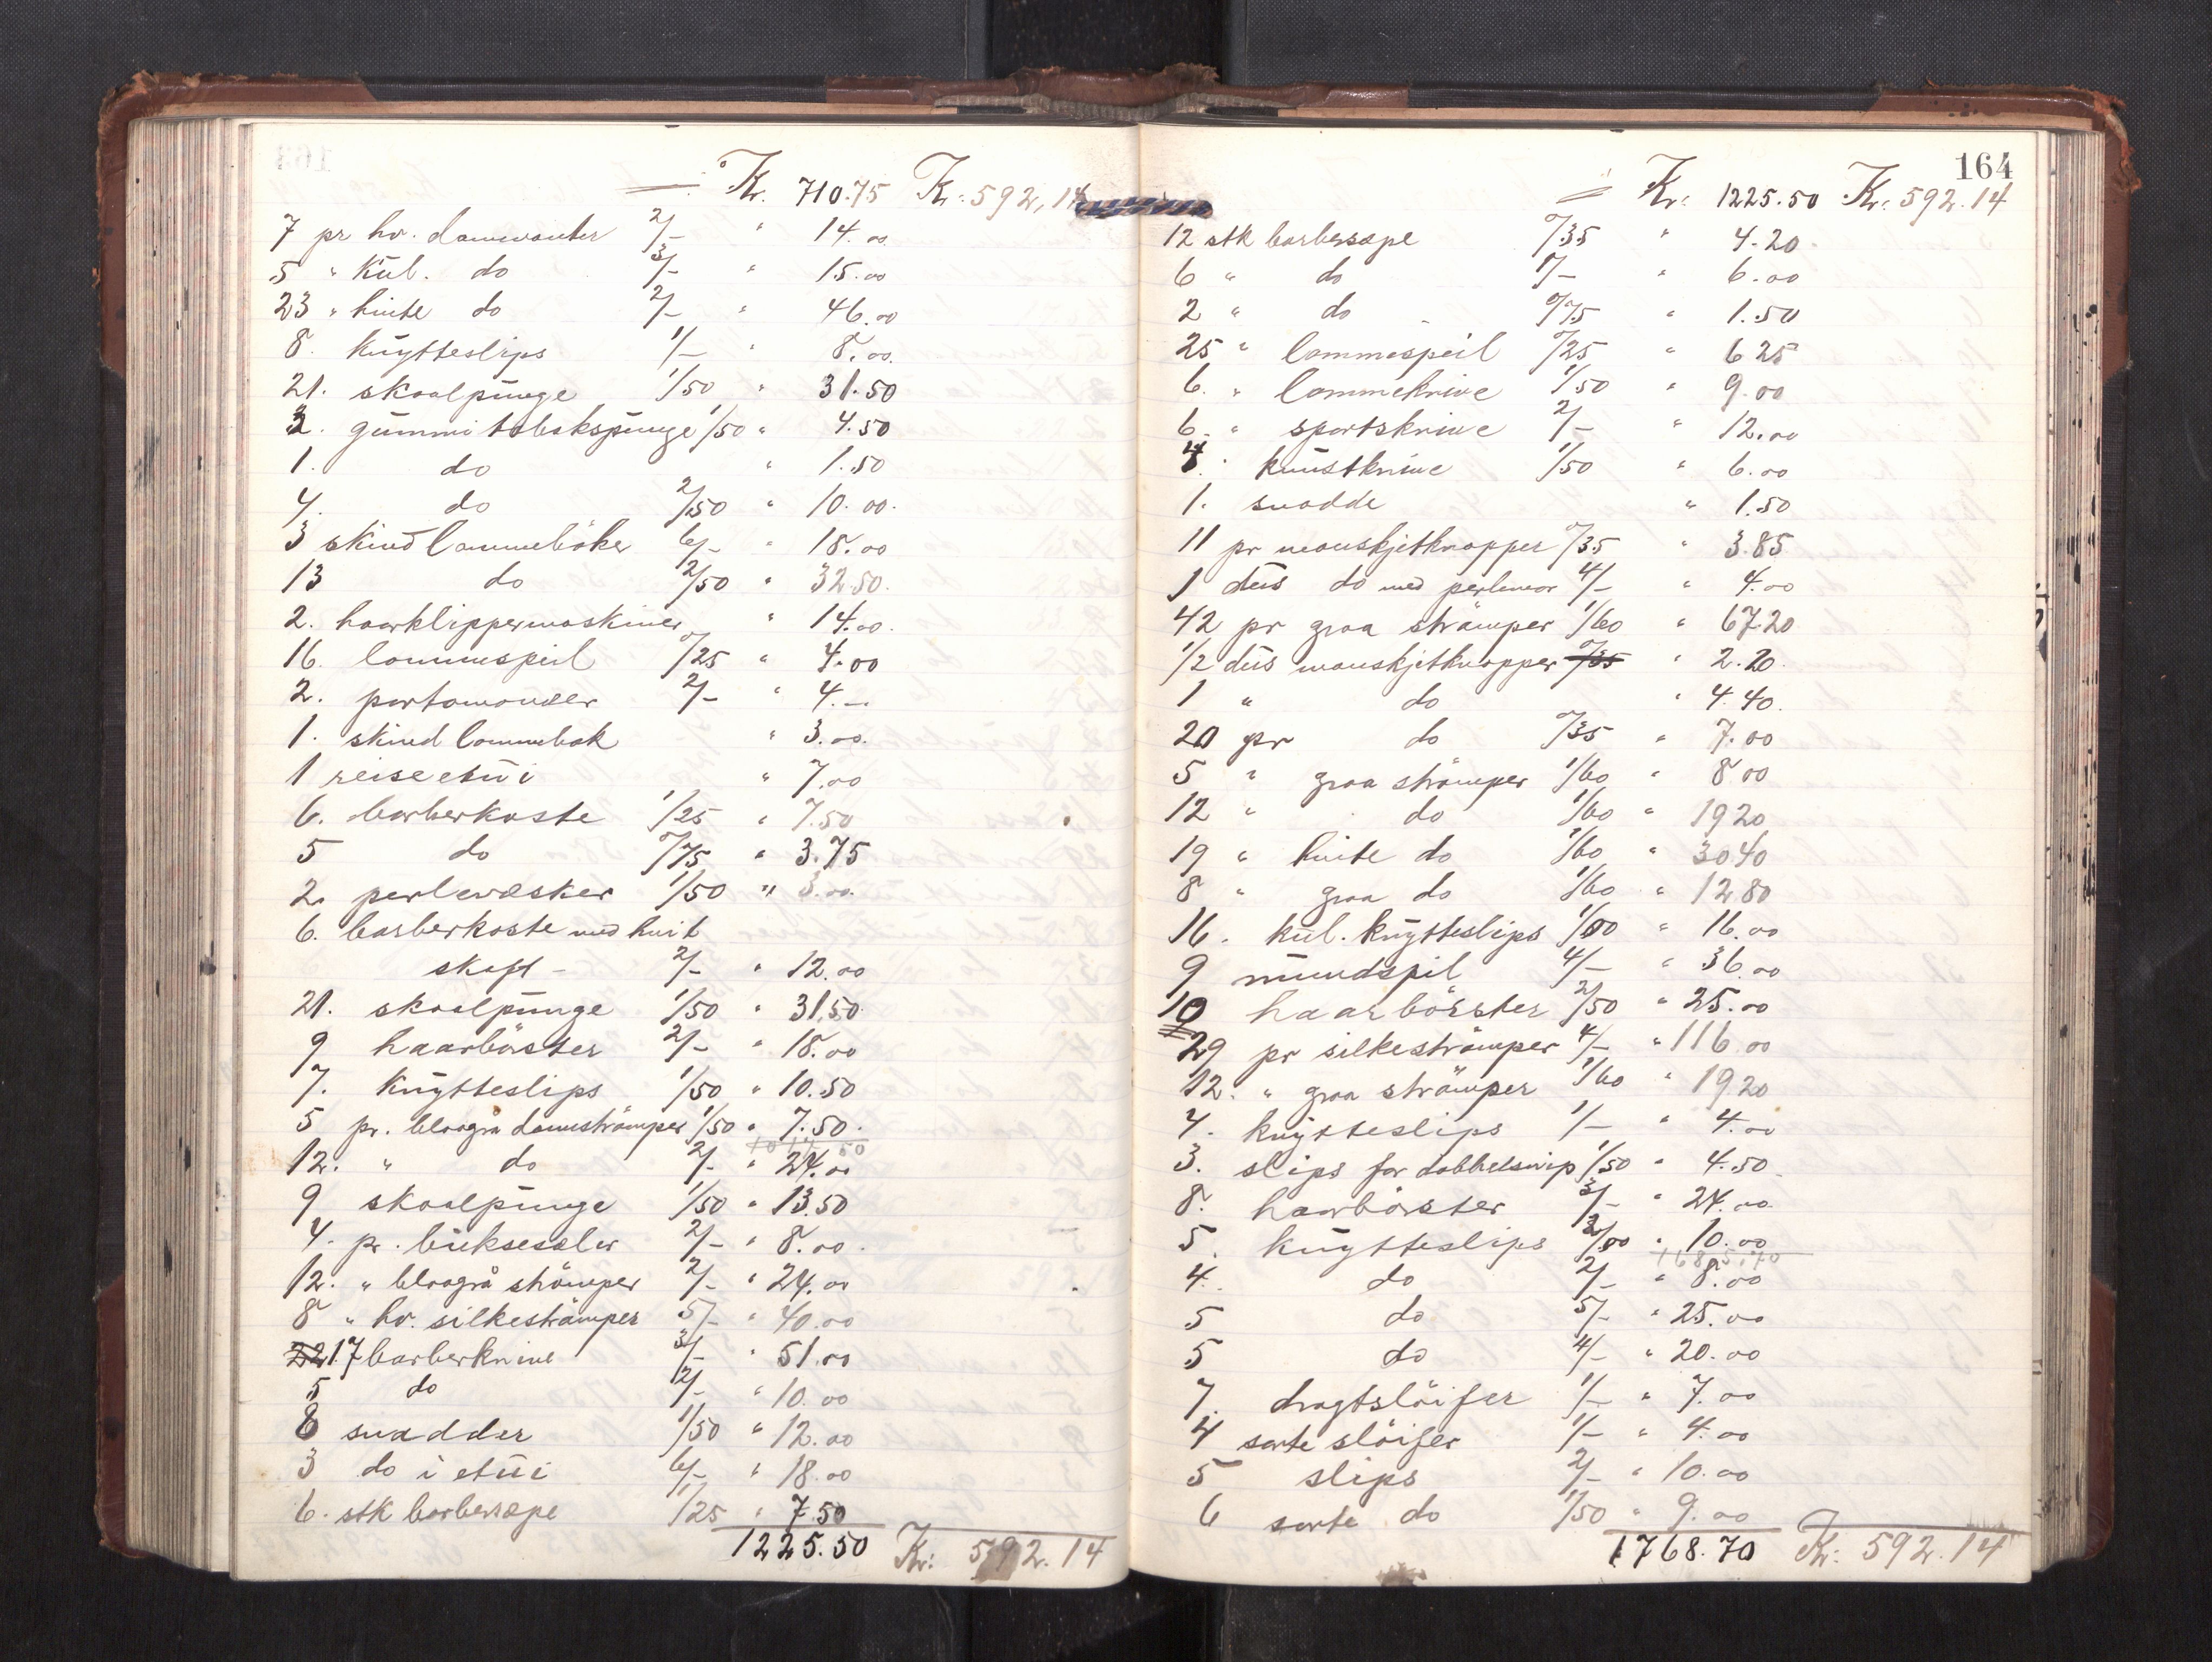 Kr. 710.75 Kr. 592,14
7 pr hv. damevanter 2/- " 14.00
5 " kul. do 3/- " 15.00
23 " hvite do 2/- " 46.00
8. knytteslips 1/- " 8.00
21. skaalpunge 1/50 " 31.50
3. gummi tobakspunge 1/50 " 4.50
1. do " 1.50
4. do 2/50 " 10.00
3 skind lommebøker 6/- " 18.00
13 do 2/50 " 32.50
2. haarklippermaskiner " 14.00
16. lommespeil 0/25 " 4.00
2. portomonæer 2/- " 4.-
1. skind lommebok " 3.00
1 reiseetui " 7.00
6. barberkoste 1/25 " 7.50
5 do 0/75 " 3.75
2. perlevæsker 1/50 " 3.00
6. barberkoste med hvit
skaft - 2/- " 12.00
21. skaalpunge 1/50 " 31.50
9 haarbörster 2/- " 18.00
7. knytteslips 1/50 " 10.50
5 pr. blaagrå dameströmper 1/50 " 7.50
12. " do 2/- " 24.00
9 skaalpunge 1/50 " 13.50
4. pr. bukseseler 2/- " 8.00
12. " blaagrå strömper 2/- " 24.00
8 " hv. silkeströmper 5/- " 40.00
22 17 barberknive 3/- " 51.00
5 do 2/- " 10.00
8 snadder 1/50 " 12.00
3 do i etui 6/- " 18.00
6. stk barbersæpe 1/25 " 7.50
1225.50 Kr: 592.14
164
Kr: 1225.50 Kr: 592.14
12 stk barbersæpe 0/35 " 4.20
6 " do 1/- " 6.00
2 " do 0/75 " 1.50
25 " lommespeil 0/25 " 6 25
6. " lommeknive 1/50 " 9.00
6. " sportsknive 2/- " 12.00
4. " knustknive 1/50 " 6.00
1. snadde " 1.50
11 pr manskjetknapper 0/35 " 3.85
1 dus do med perlemor 4/- " 4.00
42 pr graa strömper 1/60 " 67.20
1/2 dus manskjetknapper 0/35 " 2.20
1 " do " 4.40
20 pr do 0/35 " 7.00
5 " graa strömper 1/60 " 8 00
12 " do 1/60 " 19 20
19 " hvite do 1/60 " 30 40
8 " graa do 1/60 " 12 80
16. kul. knytteslips 1/00 " 16.00
9 mundspil 4/- " 36.00
10 haarbörster 2/50 " 25.00
29 pr silkeströmper 4/- " 116.00
12. " graa strömper 1/60 " 19 20
4. knytteslips 1/- " 4.00
3. slips for dobbelsnip 1/50 " 4.50
8. haarbörster 3/- " 24.00
5. knytteslips 2/00 " 10.00
4. do 2/- " 8.00
5 do 5/- " 25.00
5 do 4/- " 20.00
7. dragtslöifer 1/- " 7.00
4 sorte slöifer 1/- " 4.00
5 slips 2/- " 10.00
6 sorte do 1/50 " 9.00
1768.70 Kr: 592.14